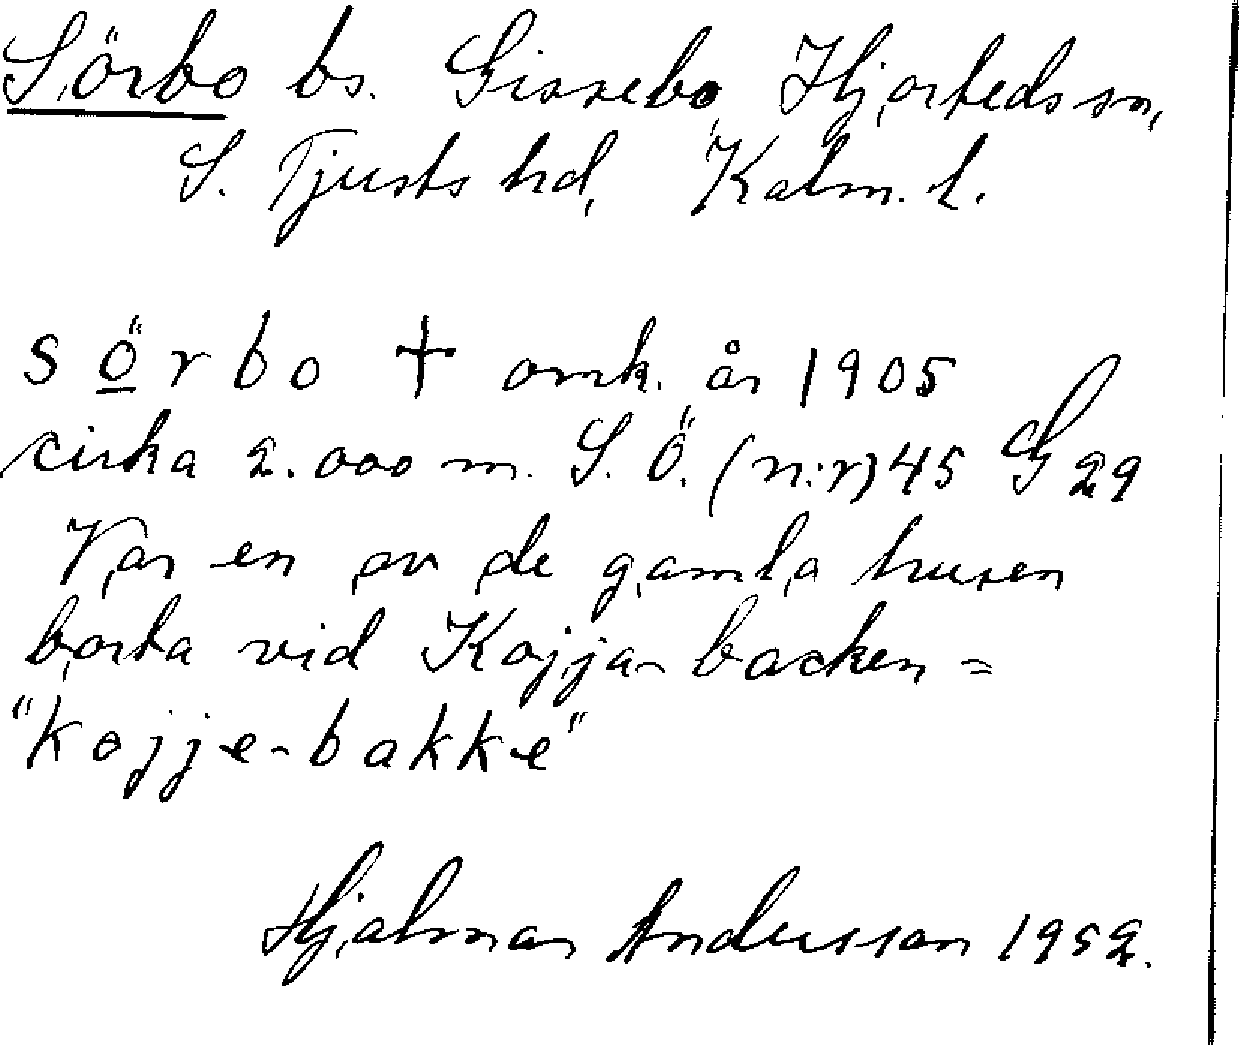 Sörbo bs. Gissebo, Hjorteds sn,
S. Tjusts hd, Kalm. l.
sörbo † omk. år 1905
cirka 2.000 m. S. Ö. (n:r) 45 G 29
Var en av de gamla husen
borta vid Kojja-backen =
"kojje-bakke"
Hjalmar Andersson 1952.